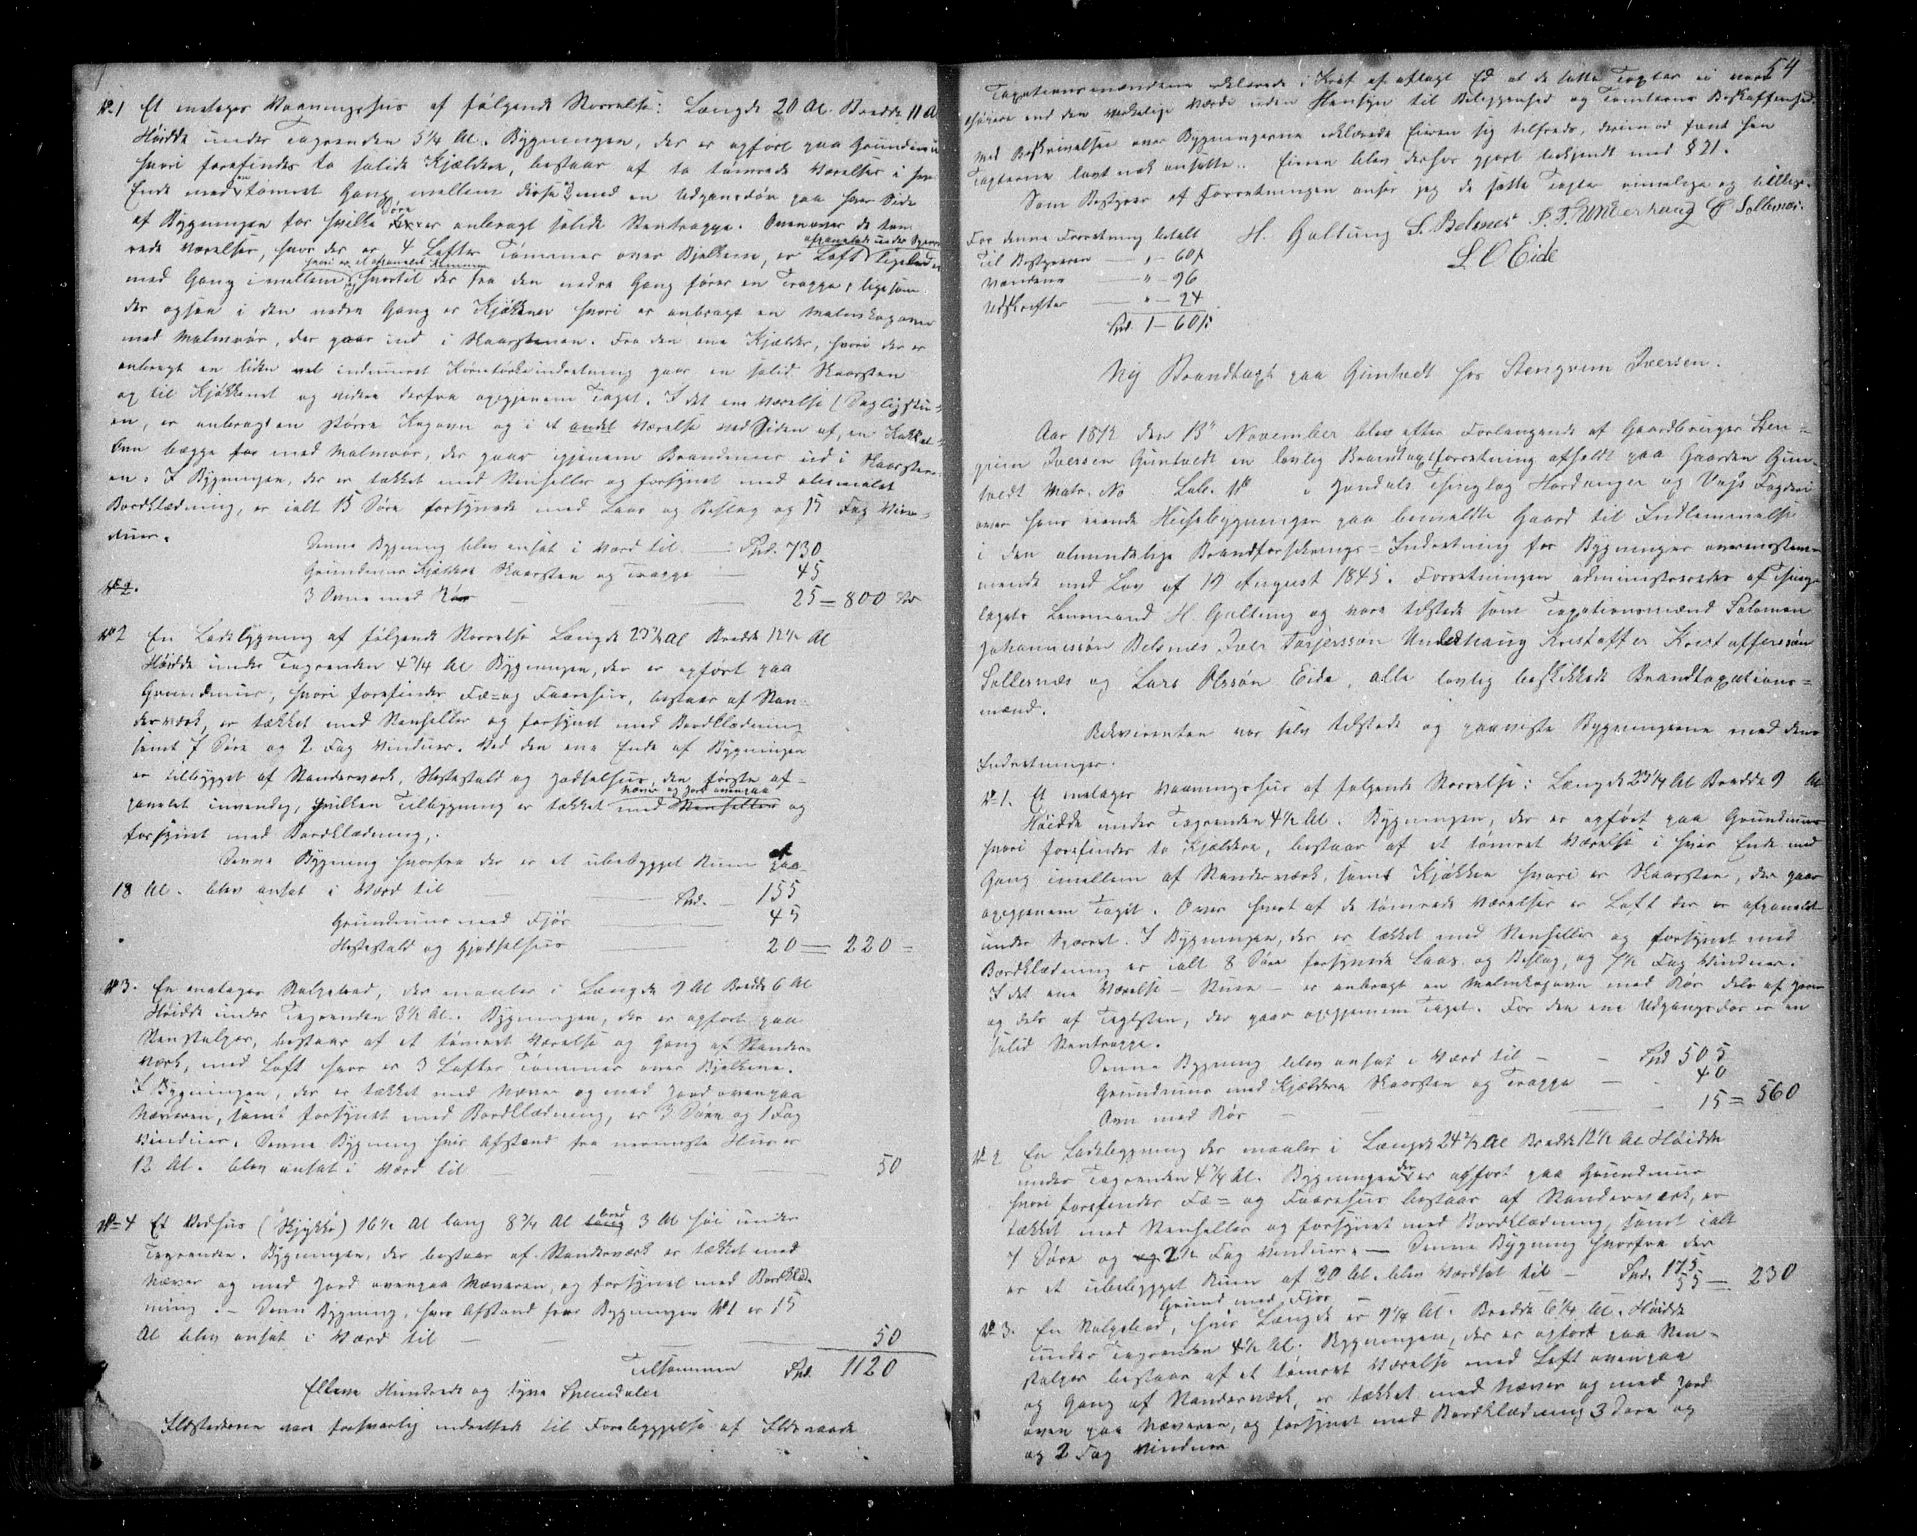 No 1 Et enetages Vaaningshus af følgende Størrelse: Længde 20 Al. Bredde 11 Al
Høidde under Tagrenden 5 1/4 Al. Bygningen, der er opført paa Grundmuur
hvori forefindes to solide Kjældere, bestaar af to tømrede Værelser i hver
Ende med en tømret Gang mellem disse med en Udgangsdør paa hver Side
af Bygningen for hvilke Døre er anbragt solide Stentrappe. Ovenover de tøm
rede Værelser, hvor der er 4 Lofter Tømmer over Bjelkene, er Loft afpanelede under Sperrer ligeledes
med Gang imellem, hvori er et afpanelet Kammer og hvortil der fra den nedre Gang fører en Trappe, ligesom
der ogsaa i den nedre Gang er Kjøkkener hvori er anbragt en Malmkogovn
med Malmrør, der gaar ind i Skorstenen. Fra den ene Kjælder, hvori der er
anbragt en liden vel indmuret Korntørkeindretning gaar en solid Skaarsten
op til Kjøkkenet og videre derfra opgjenem Taget. I det ene Værelse (Dagligstu-
en, er anbragt en større Kogovn og i et andet Værelse ved Siden af, en Kakkel-
ovn begge med Malmrør, der gaar igjenem Brandmuur ud i Skaarsten
en. I Bygningen, der er tækket med Stenheller og forsynet med oliemalet
Bordklædning, er ialt 15 Døre forsynede med Laas og Beslag og 15 Fag Vin-
duer.
Denne Bygning blev ansat i Værd til — Spd. 730
Grundmur Kjældre Skaarsten og Trappe — 45
No 2.
3 Ovne med Rør — 25 = 800 Spd
No 2 En Ladebygning af følgende Størrelse Længde 23 1/2 Al Bredde 12 1/2 Al
Høidde under Tagrenden 4 3/4 Al Bygningen, der er opført paa
Grundmuur, hvori forefindes Fæ= og Faarehus, bestaar af Stan-
derværk, er tækket med Stenheller og forsynet med Bordklædning
samt 7 Døre og 2 Fag Vinduer. Ved den ene Ende af Bygningen
er tilbygget af Standerværk, Hestestald og Gjødselhus, den første af-
panelet invendig, hvilken Tilbygning er tækket med Næver og Jord ovenpaa Stenheller og
forsynet med Bordklædning,.
Denne Bygning hvorfra der er et ubebygget Rum af paa
18 Al. blev ansat i Værd til — Spd. — 155
Grundmur med Fjør — 45
Hestestald og Gjødselhus — 20 — 220 =
No 3. En enetages Stolpebod, der maaler i Længde 9 Al Bredde 6 Al
Høidde under Tagrenden 3 1/2 Al. Bygningen, der er opført paa
Stenstolper, bestaar af et tømret Værelse og Gang af Stander-
værk, med Loft hvor er 3 Lofter Tømmer over Bjelkene.
I Bygningen, der er tækket med Næver og med Jord ovenpaa
Næveren, samt forsynet med Bordklædning, er 3 Døre og 1 Fag
Vinduer. Denne Bygning hvis Afstand fra nærmeste Hus er
12 Al. blev ansat i Værd til — 50
No 4 Et Vedhus (Skjykkje) 16 1/2 Al lang 8 3/4 Al bred 3 Al høi under
Tagrenden. Bygningen, der bestaar af Standerværk er tækket med
Næver og med Jord ovenpaa Næveren, og forsynet med Bordklæd-
ning. — Denne Bygning, hvis Afstand fra Bygningen No 1 er 15
Al blev ansat i Værd til — 50
Tilsammen Spd. 1120
Elleve Hundrede og tyve Speciedaler
Ildstederne vare forsvarlig indrettede til Forebyggelse af Ildsvaade
54
Taxationsmændene erklærede i Kraft af aflagt Ed at de satte Taxter ei vare
høiere end den virkelige Værdi uden Hensyn til Beliggenhed og Tomtens Beskaffenhed.
Med Beskrivelsen over Bygningerne erklærede Eieren sig tilfreds, derimod fandt han
Taxterne lavt nok ansatte. Eieren blev derhos gjort bekjendt med § 21.
Som Bestyrer af Forretningen anser jeg de satte Taxter rimelige og billige.
H. Galtung S. Belsnes I. T. Underhaug C. Sollesnæs
L O Eide
For denne Forretning betalt
Til Bestyreren — 1 - 60 s
Mændene — " - 96
Udskrifter — " - 24
Spd. 1 - 60 s
Ny Brandtaxt paa Guntvedt hos Stengrim Iversen.
Aar 1872 den 13de November blev efter Forlangende af Gaardbruger Sten-
grim Iversen Guntvedt en lovlig Brandtaxtforretning afholdt paa Gaarden Gun-
tvedt Matr. No Løb. No i Jondals Thinglag Hardanger og Voss Fogderi
over hans eiende Husebygninger paa bemeldte Gaard til Indlemmelse
i den almindelige Brandforsikrings-Indretning for Bygninger overensstem-
mende med Lov af 19 August 1845. Forretningen administreredes af Thing-
lagets Lensmand H. Galtung og vare tilstede som Taxationsmænd Salomon
Johannessøn Belsnes Iver Torjersson Underhaug Kristoffer Kristoffersøn
Sollesnæs og Lars Olssøn Eide, alle lovlig beskikkede Brandtaxations-
mænd.
Rekvirenten var selv tilstede og paaviste Bygningerne med deres
Indretninger.
No 1. Et enetages Vaaningshus af følgende Størrelse: Længde 23 1/4 Al Bredde 9 Al
Høidde under Tagrenden 4 1/2 Al. Bygningen, der er opført paa Grundmuur
hvori forefindes to Kjældere, bestaar af et tømret Værelse i hver Ende med
Gang imellem af Standerværk, samt Kjøkken hvori er Skaarsten, der gaar
opgjenem Taget. Over hvert af de tømrede Værelser er Loft der er afpanelet
under Sperret. I Bygningen, der er tækket med Stenheller og forsynet med
Bordklædning er ialt 8 Døre forsynede Laas og Beslag, og 7 1/2 Fag Vinduer.
I det ene Værelse — Stuen — er anbragt en Malmkogovn med Rør dels af Jern
og dels af Teglsten, der gaar opgjenem Taget. For den ene Udgangsdør er en
solid Stentrappe.
Denne Bygning blev ansat i Værd til — Spd 505
Grundmur med Kjældere Skaarsten og Trappe — 40
Ovn med Rør — 15 = 560
No 2 En Ladebygning der maaler i Længde 24 1/2 Al Bredde 12 1/2 Al Høidde
under Tagrenden 4 3/4 Al. Bygningen der er opført paa Grundmuur
hvori forefindes Fæ= og Faarehus bestaar af Standerværk, er
tækket med Stenheller og forsynet med Bordklædning, samt ialt
7 Døre og 2 1/2 Fag Vinduer. — Denne Bygning hvorfra der
er et ubebygget Rum af 20 Al. blev Værdsat til — Spd. 175
Grund med Fjør — 55 — 230
No 3. En Stolpebod, hvis Længde er 9 1/4 Al. Bredde 6 1/4 Al. Høidde
under Tagrenden 4 1/2 Al. Bygningen, der er opført paa Sten-
stolper bestaar af et tømret Værelse med Loft ovenpaa
og Gang af Standerværk, er tækket med Næver og med Jord
oven paa Næveren, og forsynet med Bordklædning 3 Døre og
og 2 Fag Vinduer